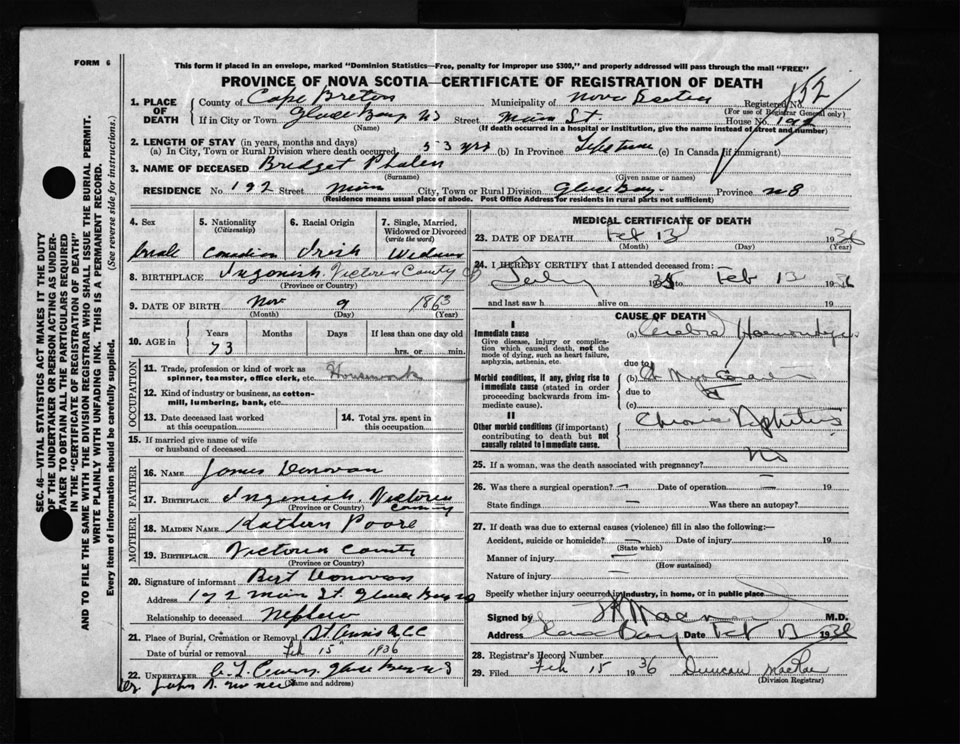 FORM 6
This form if placed in an envelope, marked "Dominion Statistics—Free, penalty for improper use $300," and properly addressed will pass through the mail "FREE"
PROVINCE OF NOVA SCOTIA—CERTIFICATE OF REGISTRATION OF DEATH
SEC. 46—VITAL STATISTICS ACT MAKES IT THE DUTY
OF THE UNDERTAKER OR PERSON ACTING AS UNDER-
TAKER TO OBTAIN ALL THE PARTICULARS REQUIRED
IN THE "CERTIFICATE OF REGISTRATION OF DEATH"
AND TO FILE THE SAME WITH THE DIVISION REGISTRAR WHO SHALL ISSUE THE BURIAL PERMIT.
WRITE PLAINLY WITH UNFADING INK. THIS IS A PERMANENT RECORD.
Every item of information should be carefully supplied. (See reverse side for instructions.)
1. PLACE OF DEATH County of Cape Breton Municipality of Nova Scotia Registered No. 152
(For use of Registrar General only)
If in City or Town Glace Bay NS Street Main St. House No. 192
(Name) (If death occurred in a hospital or institution, give the name instead of street and number)
2. LENGTH OF STAY (in years, months and days)
(a) In City, Town or Rural Division where death occurred 53 yrs (b) In Province Life time (c) In Canada (if immigrant)
3. NAME OF DECEASED Bridget Phalen
(Surname) (Given name or names)
RESIDENCE No. 192 Street Main City, Town or Rural Division Glace Bay. Province NS
(Residence means usual place of abode. Post Office Address for residents in rural parts not sufficient)
4. Sex 5. Nationality (Citizenship) 6. Racial Origin 7. Single, Married, Widowed or Divorced (write the word)
Canadian Irish Widow
8. BIRTHPLACE Ingonish, Victoria County CB
(Province or Country)
9. DATE OF BIRTH Nov 9 1863
(Month) (Day) (Year)
10. AGE in Years Months Days If less than one day old
73 hrs. or min.
OCCUPATION
11. Trade, profession or kind of work as spinner, teamster, office clerk, etc. Housework
12. Kind of industry or business, as cotton-mill, lumbering, bank, etc.
13. Date deceased last worked at this occupation
14. Total yrs. spent in this occupation
15. If married give name of wife or husband of deceased
FATHER
16. NAME James Donovan
17. BIRTHPLACE Ingonish, Victoria County
(Province or Country)
MOTHER
18. MAIDEN NAME Kathern Poore
19. BIRTHPLACE Victoria County
(Province or Country)
20. Signature of informant Bert Donovan
Address 192 Main St. Glace Bay NS
Relationship to deceased Nephew
21. Place of Burial, Cremation or Removal St Annis
Date of burial or removal Feb 15 1936
22. UNDERTAKER Glace Bay NS
(Name and address)
MEDICAL CERTIFICATE OF DEATH
23. DATE OF DEATH Feb 13 1936
(Month) (Day) (Year)
24. I HEREBY CERTIFY that I attended deceased from:
July 35 to Feb 13 1936
and last saw h alive on 19
CAUSE OF DEATH
I
Immediate cause
Give disease, injury or complication which caused death, not the mode of dying, such as heart failure, asphyxia, asthenia, etc.
(a) Cerebral Haemorrhage
due to
Morbid conditions, if any, giving rise to immediate cause (stated in order proceeding backwards from immediate cause).
(b)
due to
(c)
II
Other morbid conditions (if important) contributing to death but not causally related to immediate cause.
Chronic Nephritis
25. If a woman, was the death associated with pregnancy? No
26. Was there a surgical operation? — Date of operation — 19
State findings — Was there an autopsy?
27. If death was due to external causes (violence) fill in also the following:—
Accident, suicide or homicide? — Date of injury 19
(State which)
Manner of injury —
(How sustained)
Nature of injury —
Specify whether injury occurred in industry, in home, or in public place
Signed by M.D.
Address Glace Bay Date Feb 13 1936
28. Registrar's Record Number
29. Filed Feb 15 1936 Duncan MacRae
(Division Registrar)